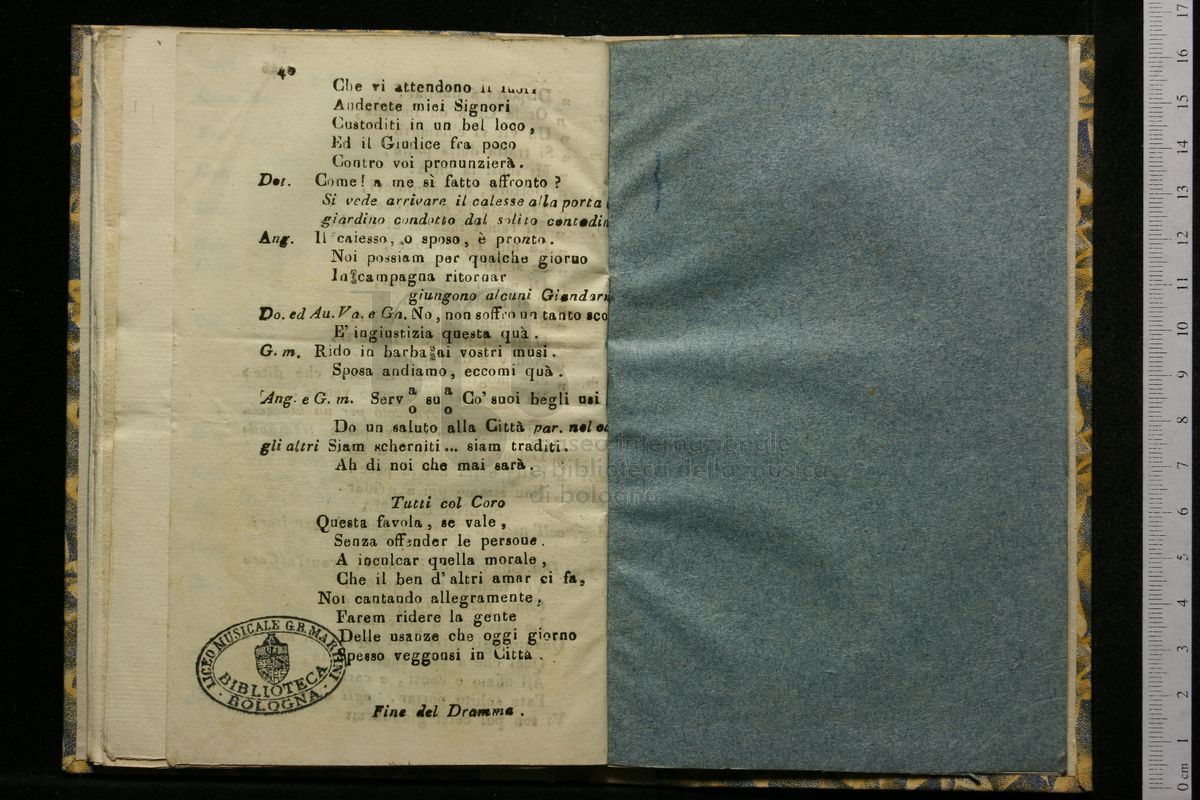 40
Che vi attendono lì fuori
Anderete miei Signori
Custoditi in un bel loco,
Ed il Giudice fra poco
Contro voi pronunzierà.
Dot. Come! a me sì fatto affronto?
Si vede arrivare il calesse alla porta
giardino condotto dal solito
Ang. Il calesso, o sposo, è pronto.
Noi possiam per qualche giorno
In campagna ritornar
giungono alcuni
Do. ed Au. Va. e Ga. No, non soffro un tanto
E' ingiustizia questa quà.
G. m. Rido in barba ai vostri musi.
Sposa andiamo, eccomi quà.
Ang. e G. m. Serv a/o su a/o Co' suoi begli usi
Do un saluto alla Città par. nel
gli altri Siam scherniti... siam traditi.
Ah di noi che mai sarà.
Tutti col Coro
Questa favola, se vale,
Senza offender le persone.
A inculcar quella morale,
Che il ben d'altri amar ci fa,
Noi cantando allegramente,
Farem ridere la gente
Delle usanze che oggi giorno
Spesso veggonsi in Città.
Fine del Dramma.
LICEO MUSICALE G.B. MARTINI
BIBLIOTECA
BOLOGNA
museo internazionale
e biblioteca della musica
di bologna
0 cm 1 2 3 4 5 6 7 8 9 10 11 12 13 14 15 16 17